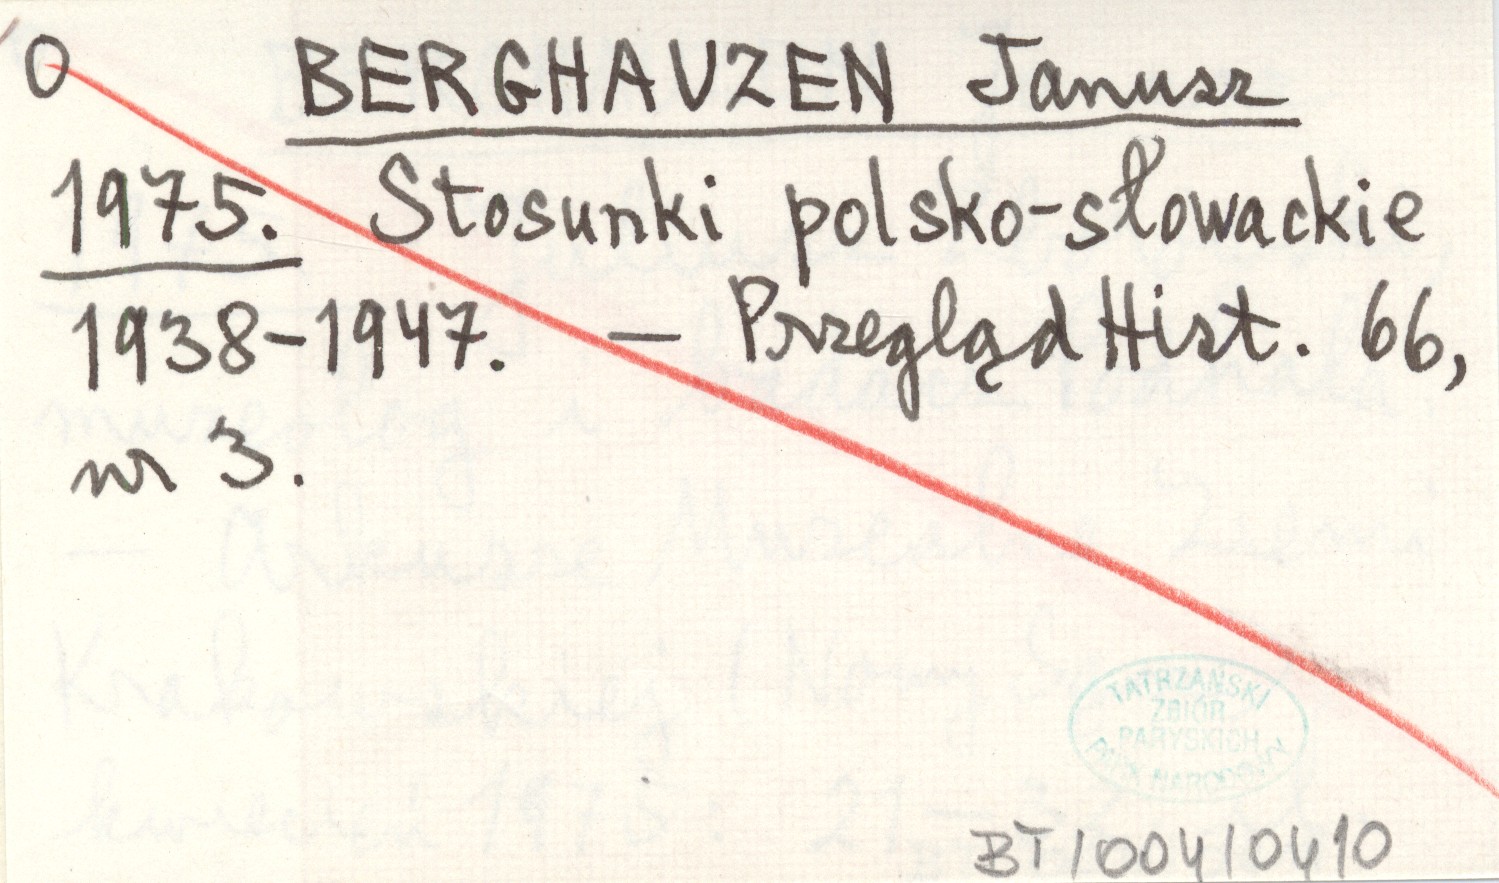 O BERGHAUZEN Janusz
1975. Stosunki polsko-słowackie
1938-1947. — Przegląd Hist. 66,
nr 3.
TATRZAŃSKI
ZBIÓR
PARYSKICH
PARK NARODOWY
BT/004/0410